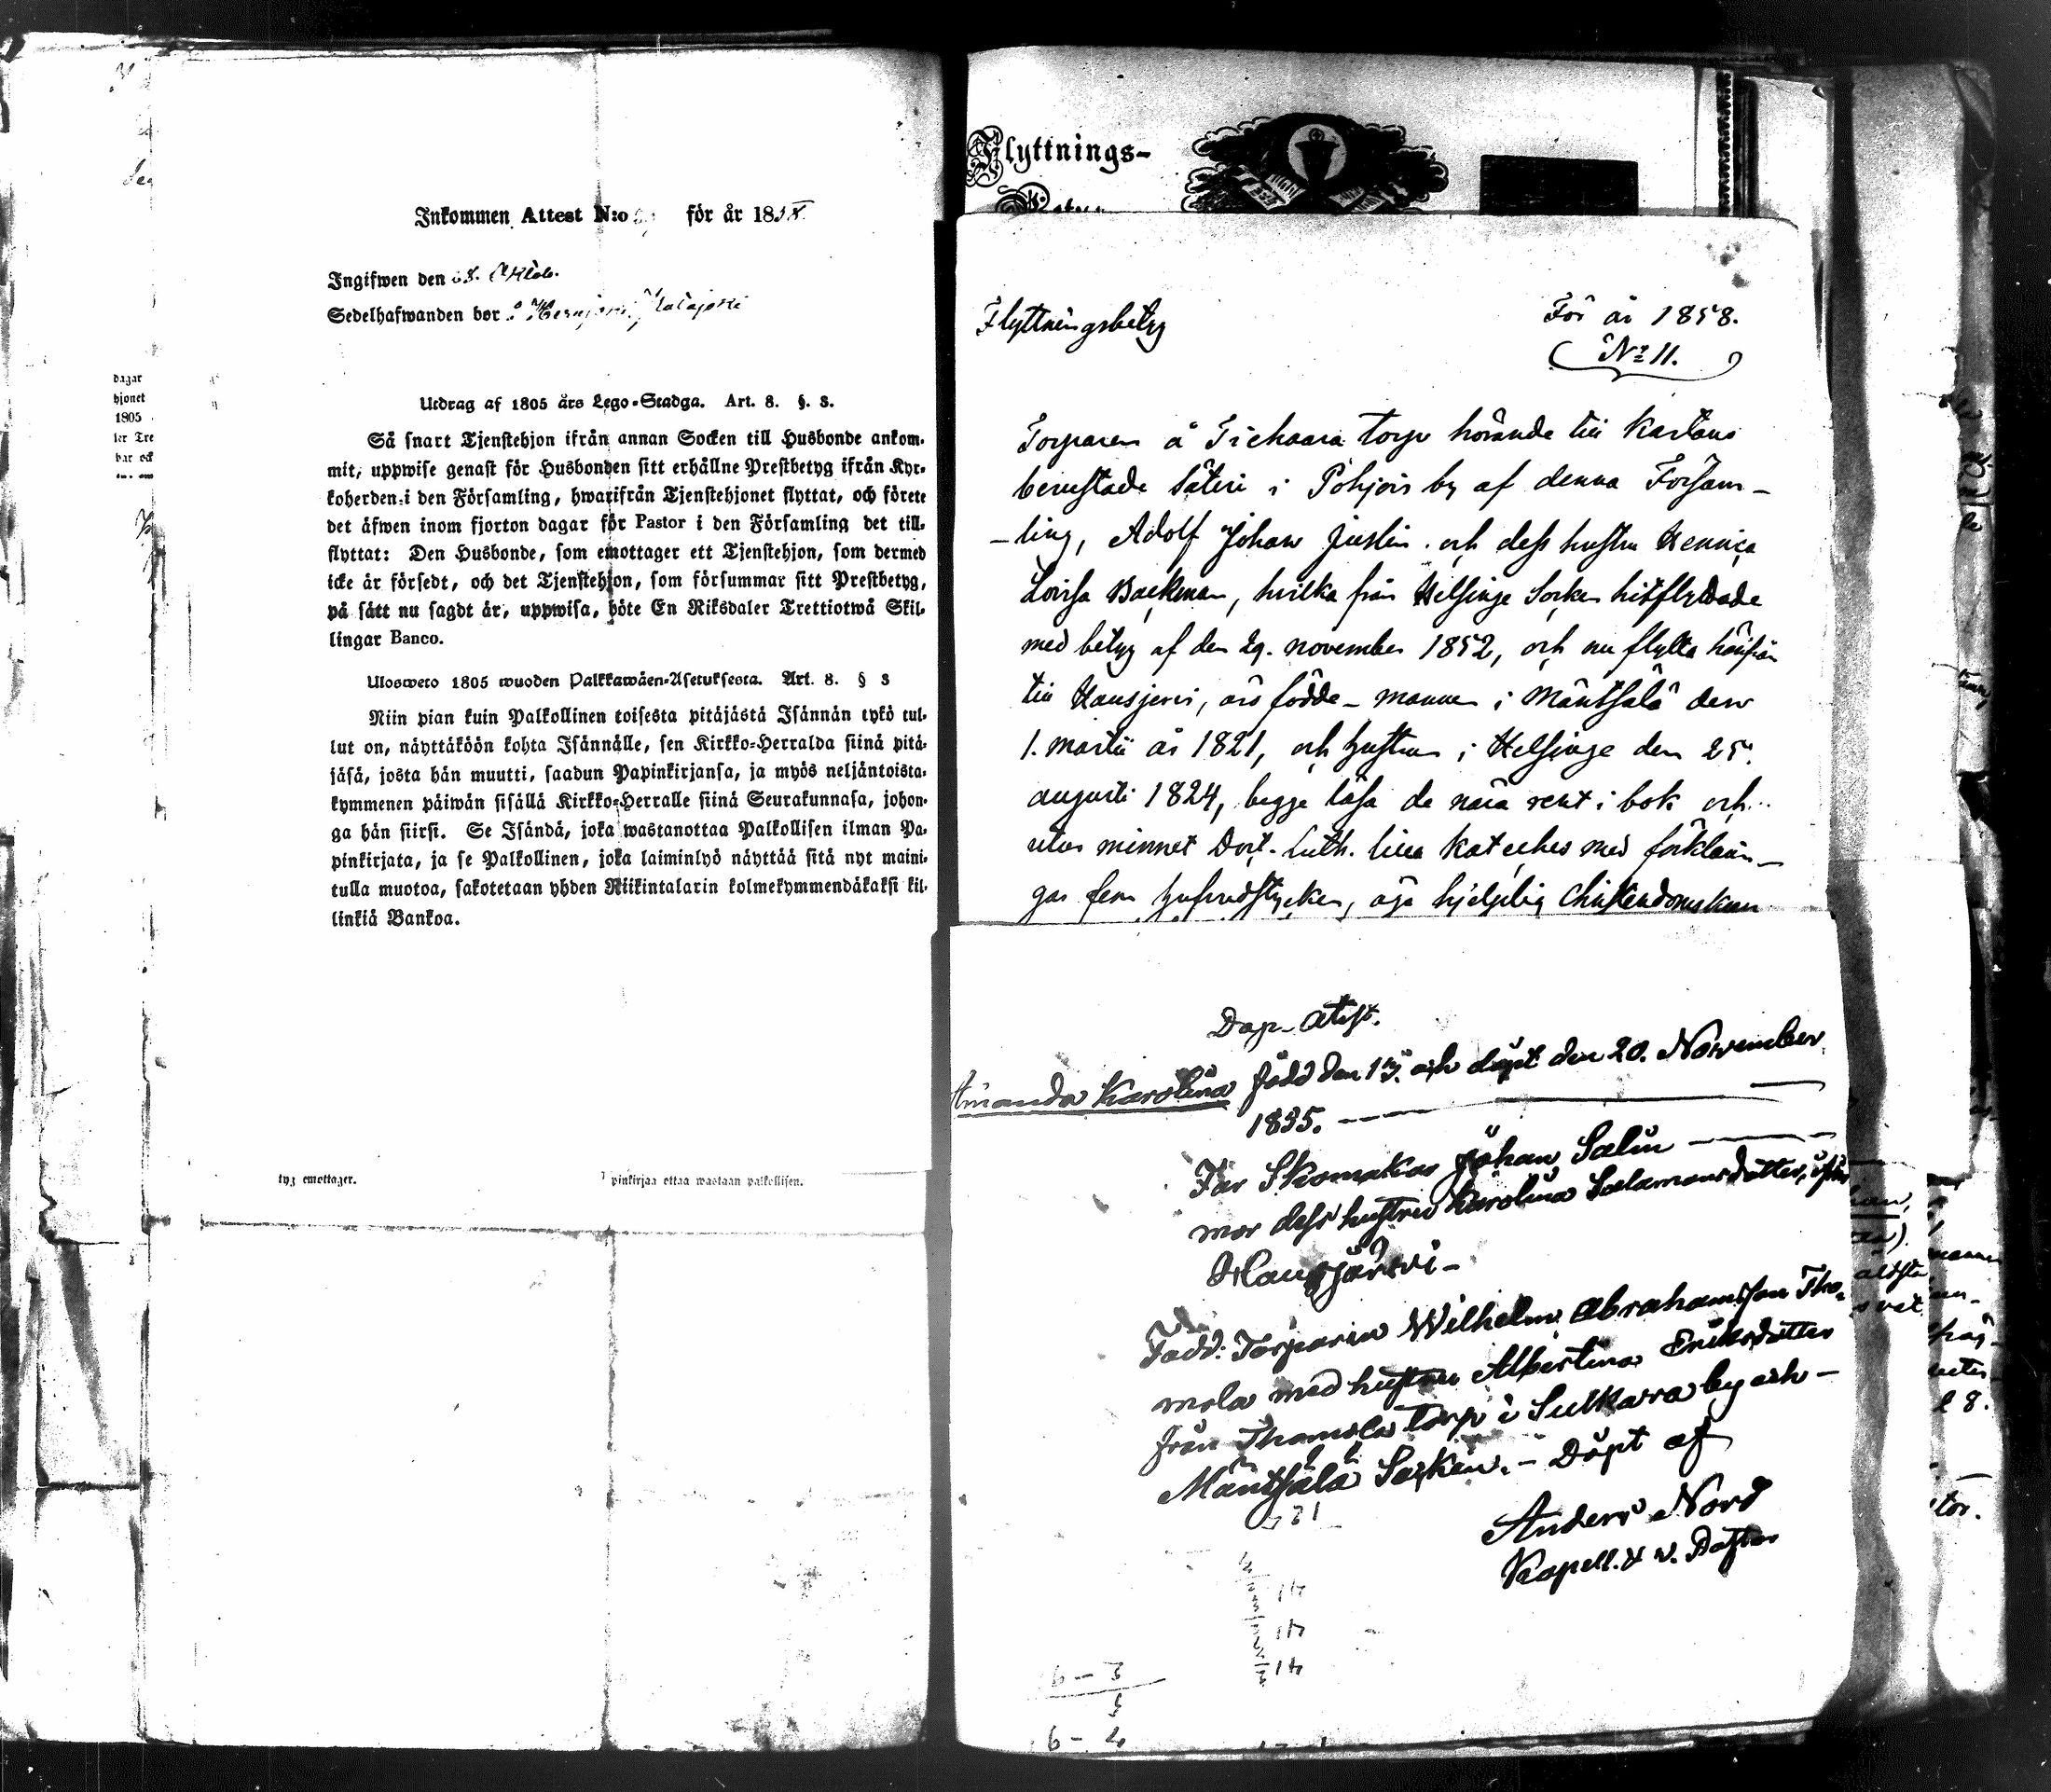 Inkommen Attest N:o för år 1858
Ingifwen den 28. Oktob.
Sedelhafwanden bor i
Utdrag af 1805 års Lego-Stadga. Art. 8. §. 8.
Så snart Tjenstehjon ifrån annan Socken till Husbonde ankom-
mit, uppwise genast för Husbonden sitt erhållne Prestbetyg ifrån Kyr-
koherden i den Församling, hwarifrån Tjenstehjonet flyttat, och förete
det äfwen inom fjorton dagar för Pastor i den Församling det till-
flyttat: Den Husbonde, som emottager ett Tjenstehjon, som dermed
icke är försedt, och det Tjenstehjon, som försummar sitt Prestbetyg,
på sätt nu sagdt är, uppwisa, böte En Riksdaler Trettiotwå Skil-
lingar Banco.
Ulosweto 1805 wuoden Palkkawäen-Asetuksesta. Art. 8. § 8
Niin pian kuin Palkollinen toisesta pitäjästä Isännän tykö tul-
lut on, näyttäköön kohta Isännälle, sen Kirkko-Herralda siinä pitä-
jäsä, josta hän muutti, saadun Papinkirjansa, ja myös neljäntoista-
kymmenen päiwän sisällä Kirkko-Herralle siinä Seurakunnasa, johon-
ga hän siirsi. Se Isändä, joka wastanottaa Palkollisen ilman Pa-
pinkirjata, ja se Palkollinen, joka laiminlyö näyttää sitä nyt maini-
tulla muotoa, sakotetaan yhden Riikintalarin kolmekymmendäkaksi kil-
linkiä Bankoa.
tyg emottager.
pinkirjaa ottaa wastaan palkollisen.
dagar
hjonet
1805
ler Tre
bar ock
Flyttnings-
Flyttningsbetyg
För år 1858.
No 11.
Torparen å torp hörande till Kartano
benustade Säteri i Pohjois by af denna Försam-
-ling, Adolf Johan Juslin och dess hustru Henrica
Lovisa Backman, hvilka från Helsinge Socken hitflyttade
med betyg af den 29. november 1852, och nu flytta härifrån
till Hausjervi, äro födde - mannen i Mäntsälä den
1. martii år 1821, och hustrun i Helsinge den 25.
augusti 1824, begge läsa de nära rent i bok och
utur minnet Doct. Luth. lilla Kateches med förklarin-
gar fem hufvudstycken, äga hjelplig Christendomskun
Dop-Attest.
Amanda Karolina född den 13. och döpt den 20. November
1835.
Far Skomakar Johan Salin
mor dess hustru Karolina Salamonsdotter, ifrån
Hausjärwi -
Fadd: Torparen Wilhelm Abrahamsson Tho-
mola med hustru Albertina Eriksdotter
från Thomola torp i Sulkava by och -
Mäntsälä Socken. - Döpt af
Anders Nord
Kapell. & v. Pastor